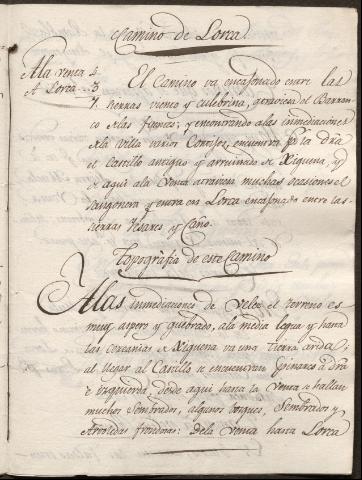 Camino de Lorca.
A la venta 4
A Lorca 3
7
El Camino va encañonado entre las
tierras viento y culebrina, atraviesa el Barran
co de las fuentes, y encontrando a las inmediaciones
de la villa varios Cortijos, encuentra pr la dra
el Castillo antiguo y arruinado de Xiquena, y
de aqui ala Venta atraviesa muchas ocasiones el
sangonera y entra en Lorca encañonado entre las
sierras Pesares y Caño.
Topografía de este Camino
Alas inmediaciones de Velez el terreno es
muy aspero y quebrado, ala media legua y hasta
las cercanias de Xiquena va una tierra arida,
al llegar al Castillo se encuentran Pinares a dra
e izquierda, desde aqui hasta la Venta se hallan
muchos sembrados, algunos bosques, Sembrados y
Arboledas frondosas: Dela Venta hasta Lorca